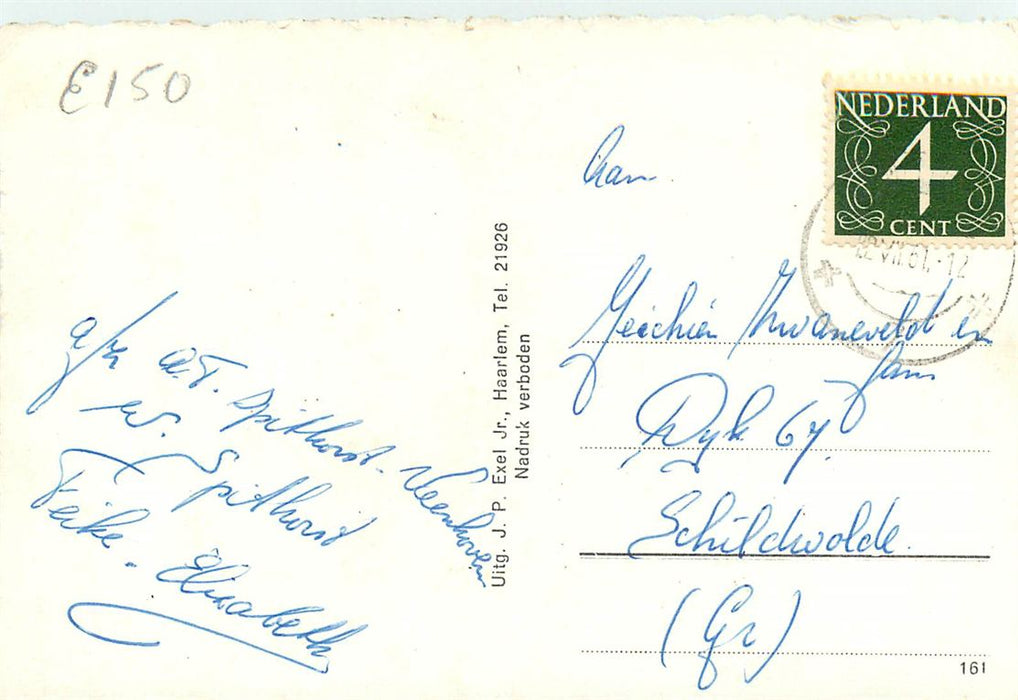 E150
NEDERLAND
4
CENT
Aan
Geichien Zwaneveld en
fam
Dyk 67.
Schildwolde.
(Gr)
161
Uitg. J. P. Exel Jr., Haarlem, Tel. 21926
Nadruk verboden
a/z
A.T. Spithorst-Veenhoven
W. Spithorst
Feike. Elisabeth